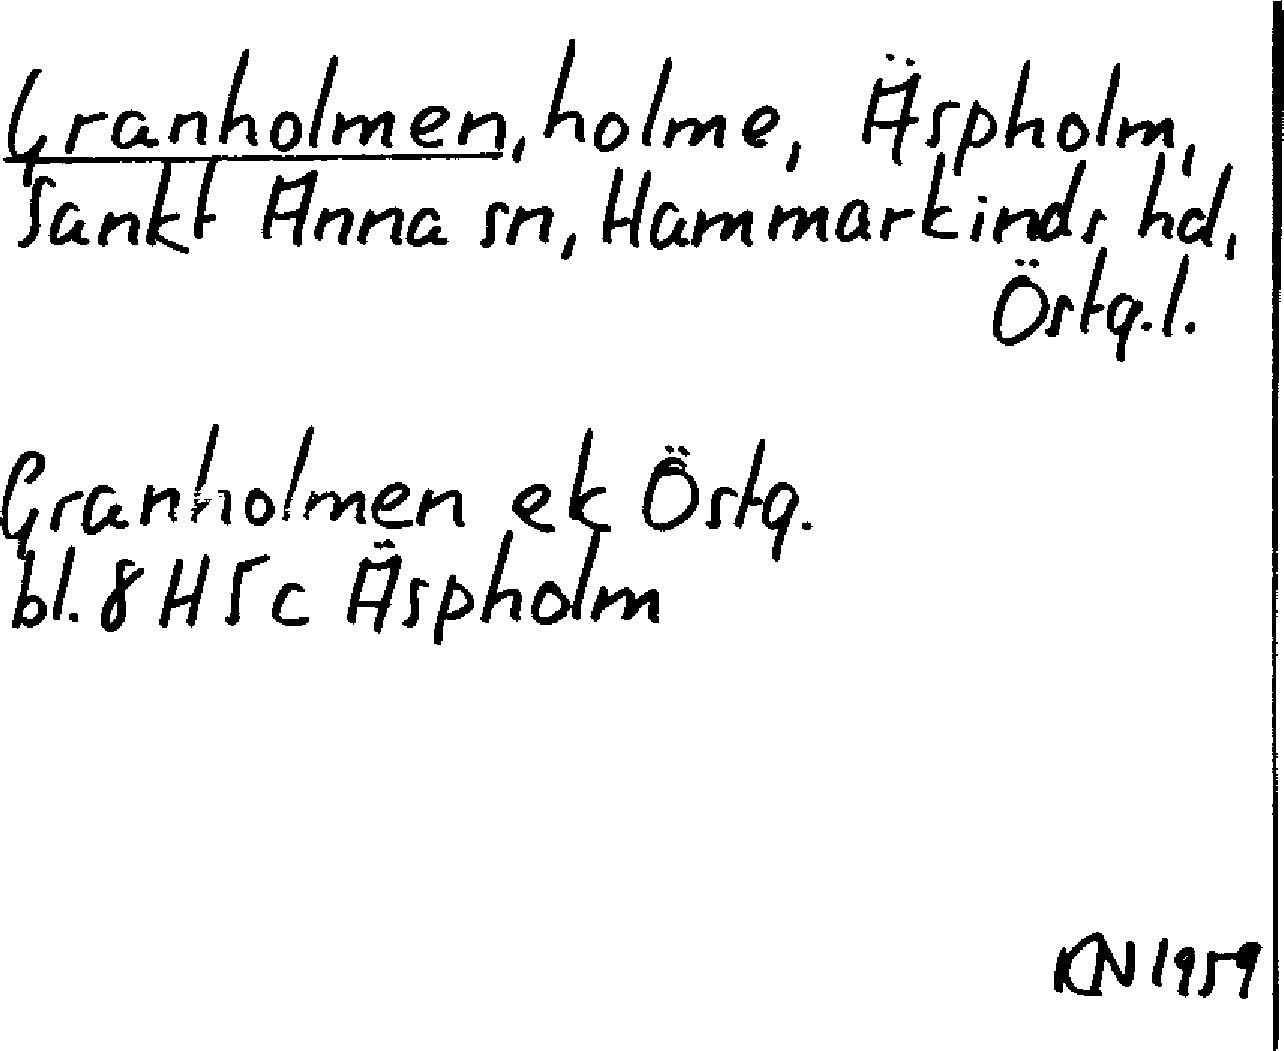 Granholmen, holme, Äspholm,
Sankt Anna sn, Hammarkinds hd,
Östg.l.
Granholmen ek Östg.
bl. 8 H 5 c Äspholm
KN 1959